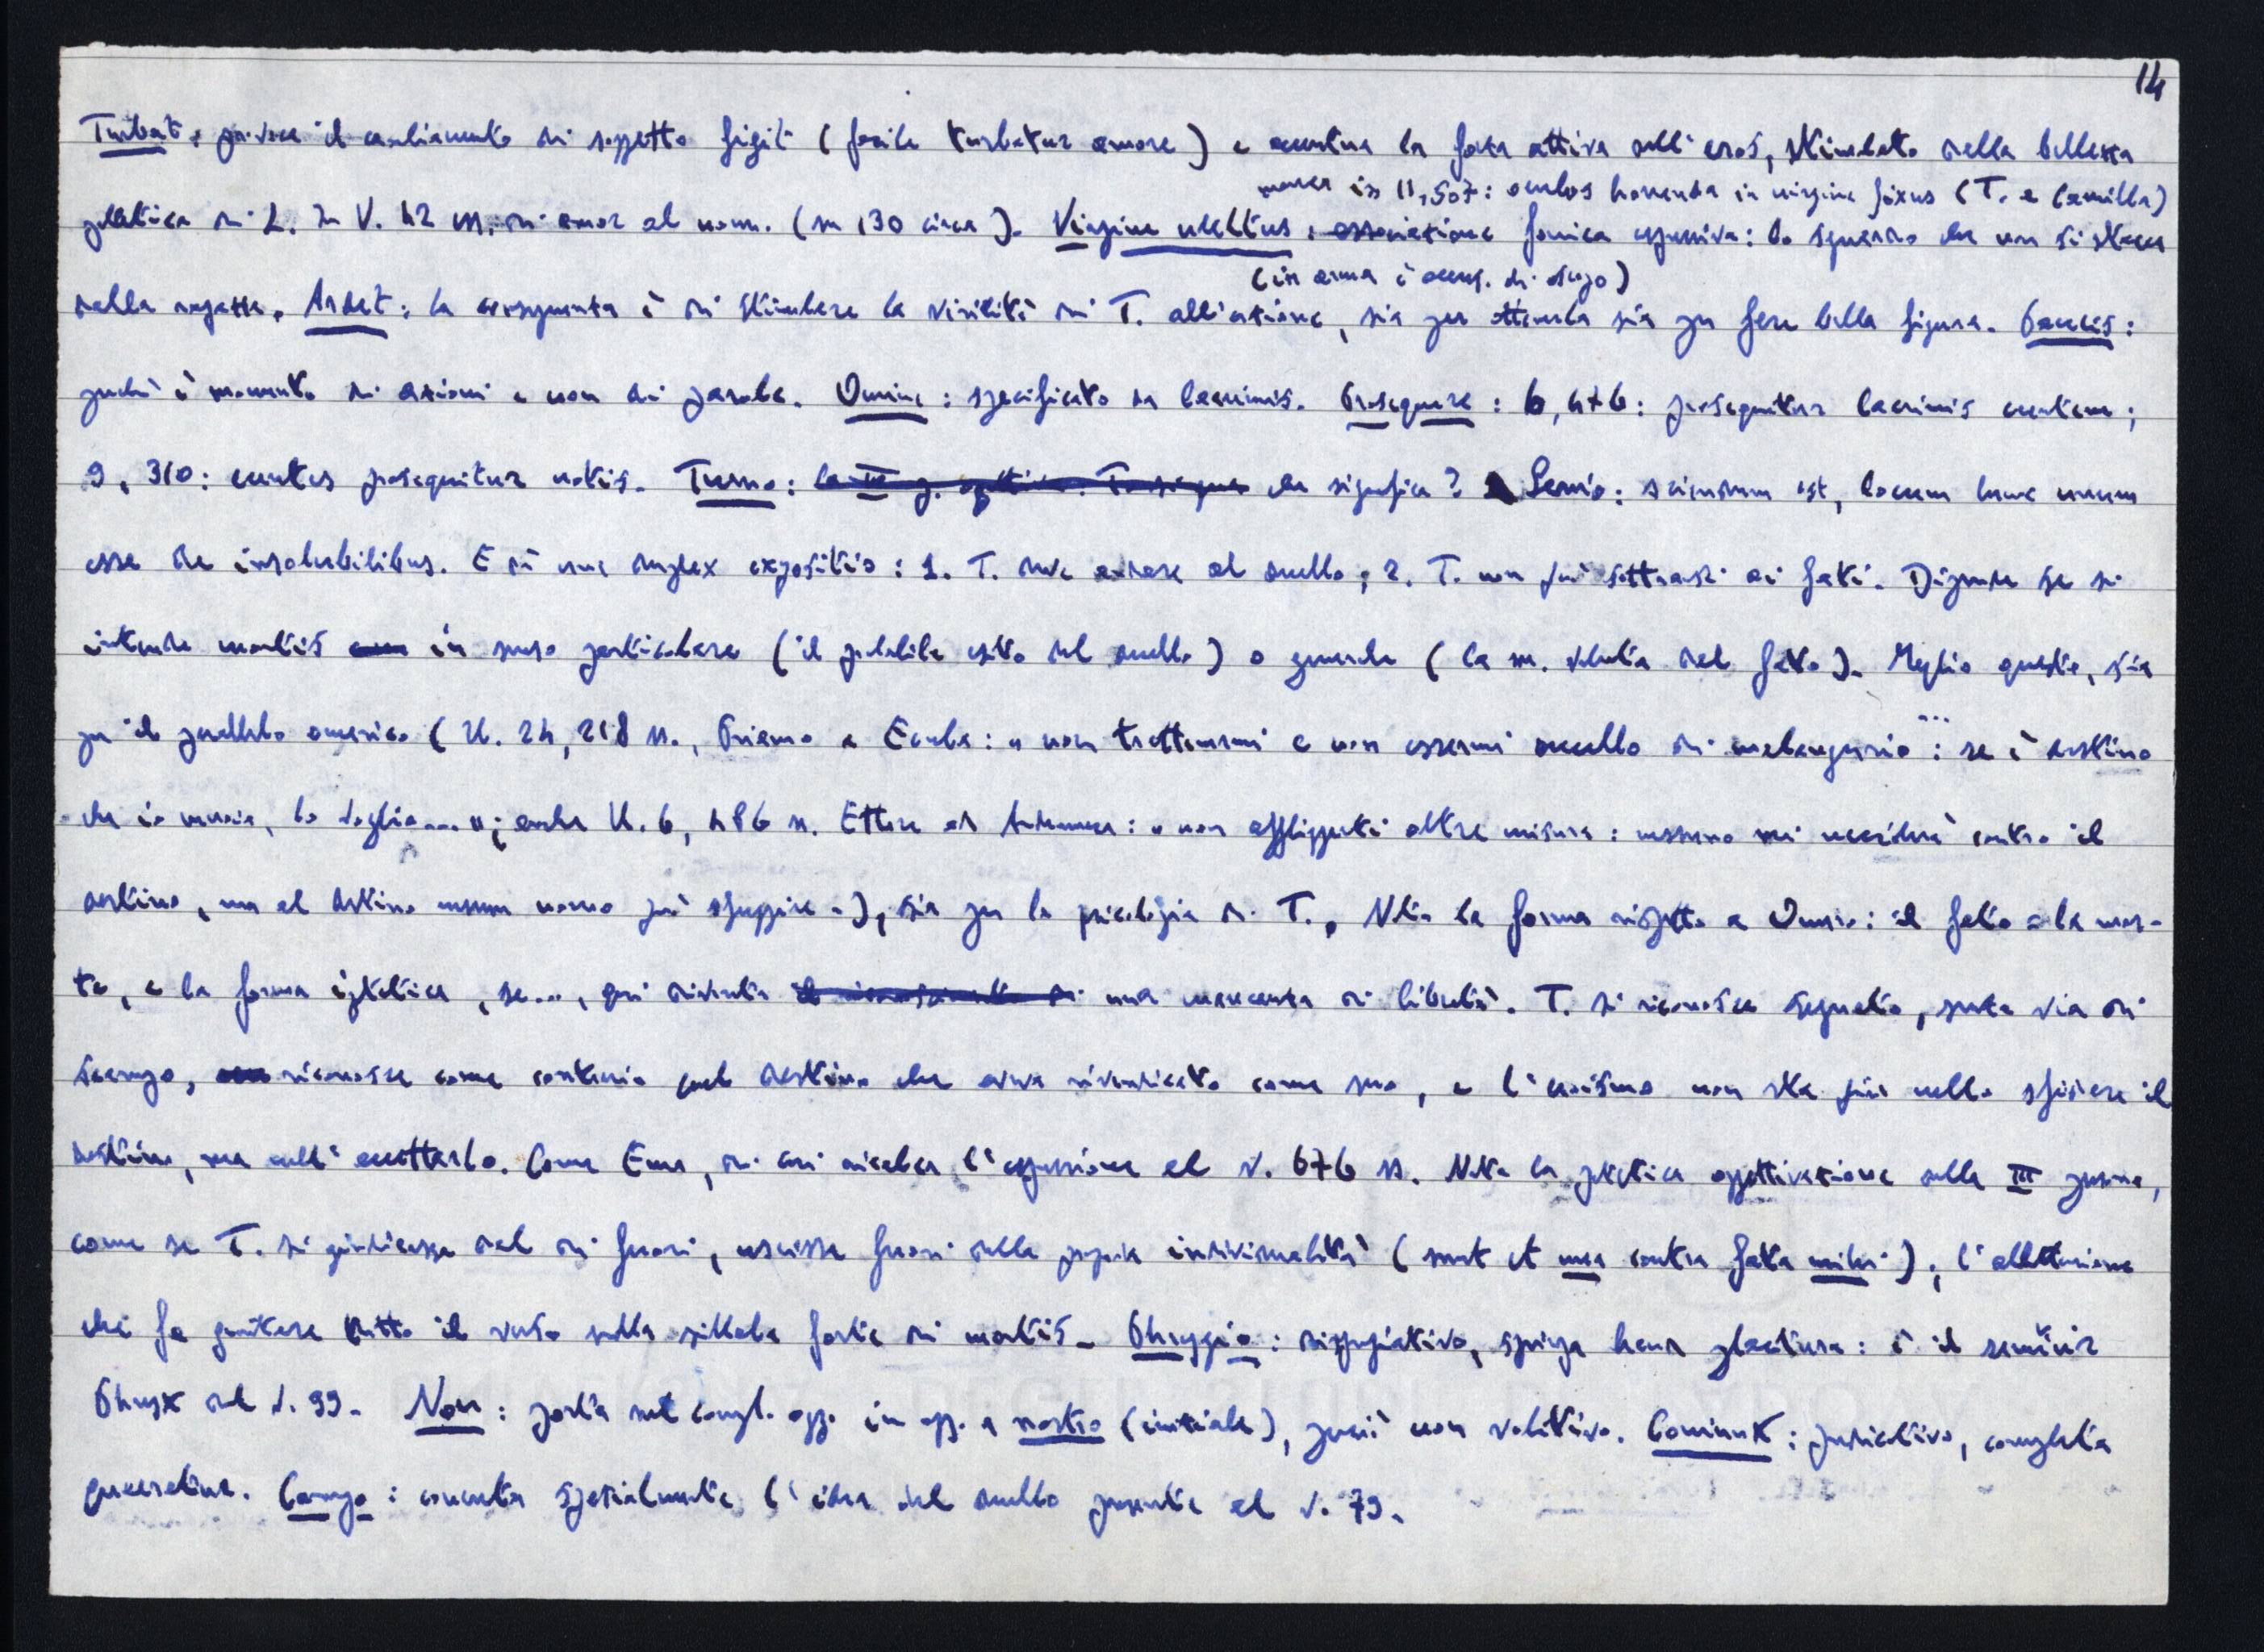 14
Turbat: provoca il cambiamento di soggetto figit (facile turbatur amore) e accentua la forza attiva dell'eros, stimolato dalla bellezza
manca in 11,507: oculos horrenda in virgine fixus (T. e Camilla)
di L. In V. 42 ss. di amor al nom. (su 130 circa). Virgine uultus: associazione fonica espressiva: lo sguardo che non si stacca
(in arma è accus. di scopo)
dalla ragazza. Ardet: la conseguenza è di stimolare la virilità di T. all'azione, sia per ottenerla sia per fare bella figura. Paucis:
perché è momento di azioni e non di parole. Omine: specificato da lacrimis. Prosequere: 6, 476: prosequitur lacrimis euntem;
9, 310: euntes prosequitur uotis. Turno: che significa? Servio: sciendum est, locum hunc unum
esse de insolubilibus. E dà una duplex expositio: 1. T. deve andare al duello; 2. T. non può sottrarsi ai fati. Dipende se si
intende mortis in senso particolare (il probabile esito del duello) o generale (la m. voluta dal fato). Meglio questo, sia
per il parallelo omerico (Il. 24, 218 ss., Priamo a Ecuba: « non trattenermi e non essermi uccello di malaugurio...: se è destino
che io muoia, lo voglio... »; anche Il. 6, 486 ss. Ettore ad Andromaca: « non affliggerti oltre misura: nessuno mi ucciderà contro il
destino, ma al destino nessun uomo può sfuggire »), sia per la psicologia di T. Nota la forma rispetto a Omero: il fato = la mor-
te, e la forma ipotetica, se..., qui diventa una mancanza di libertà. T. si riconosce segnato, senza via di
scampo, riconosce come contrario quel destino che aveva rivendicato come suo, e l'eroismo non sta più nello sfidare il
destino, ma nell'accettarlo. Come Enea, di cui ricalca l'espressione al v. 676 ss. Nota la patetica oggettivazione della III persona,
come se T. si giudicasse dal di fuori, uscisse fuori dalla propria individualità (sunt et mea contra fata mihi); l'allitterazione
che fa gravitare tutto il verso sulla sillaba forte di mortis. Phrygio: dispregiativo, spiega haud placitura: è il semivir
Phryx del v. 99. Non: porta sul compl. ogg. in opp. a nostro (iniziale), perciò non volitivo. Coniunx: predicativo, completa
quaeratur. Campo: connota spazialmente l'idea del duello presente al v. 79.